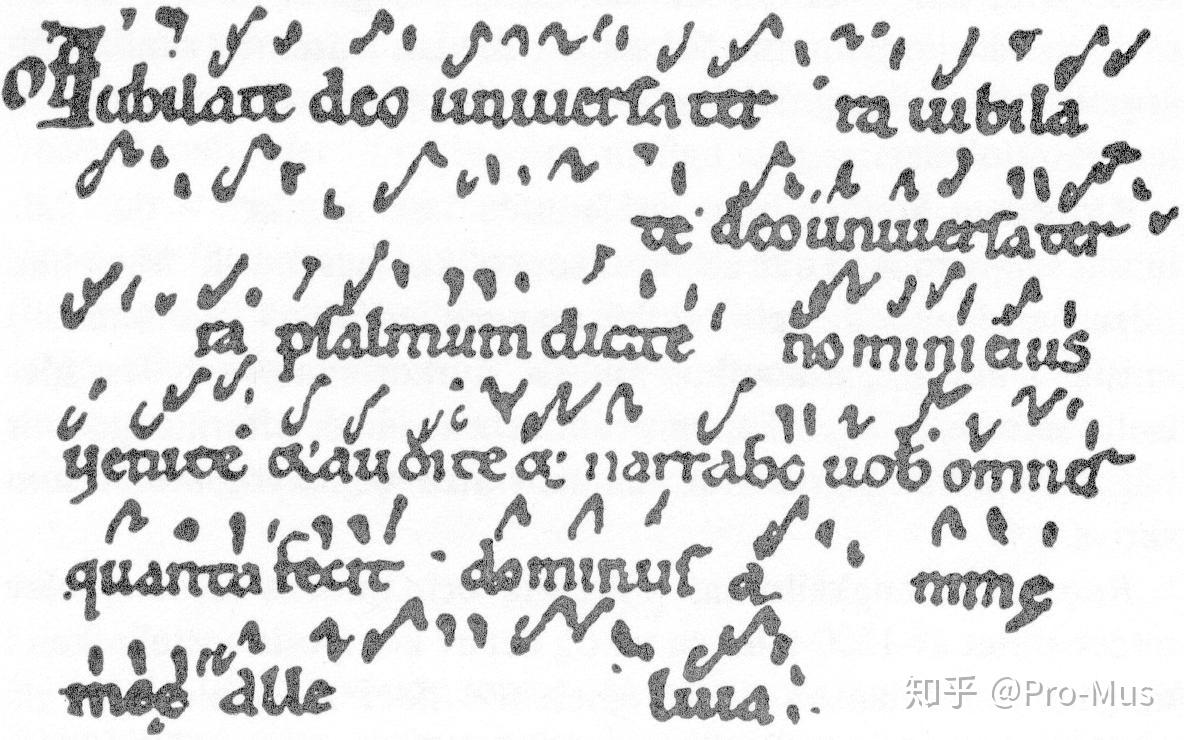 Iubilate deo uniuersa ter ra iubila
te deo uniuersa ter
ra psalmum dicite nomini eius
uenite & audite & narrabo uob omnes
quanta fecit dominus a nimę
meę alle luia.
知乎 @Pro-Mus